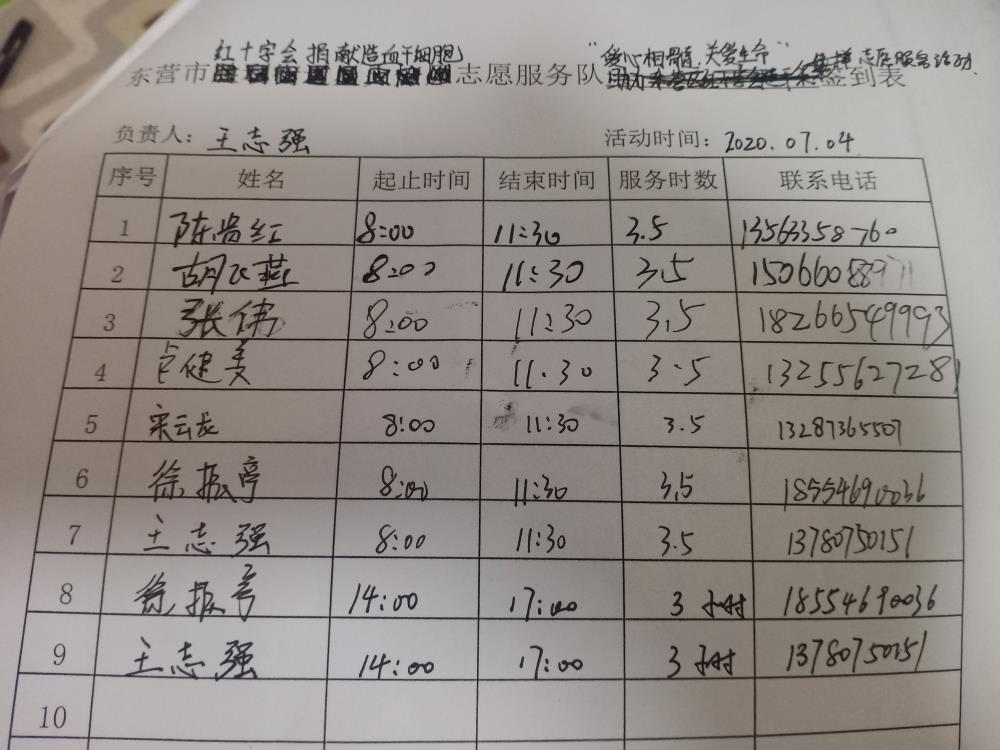 红十字会捐献造血干细胞 "爱心相髓,关爱生命" 志愿服务活动
东营市 志愿服务队 签到表
负责人:王志强 活动时间:2020.07.04
序号 姓名 起止时间 结束时间 服务时数 联系电话
1 陈尚红 8:00 11:30 3.5 13563358760
2 胡飞燕 8:00 11:30 3.5
3 张伟 8:00 11:30 3.5 18266549993
4 卢健美 8:00 11.30 3.5 13255627281
5 宋云龙 8:00 11:30 3.5 13287365507
6 徐振亭 8:00 11:30 3.5 18554690036
7 王志强 8:00 11:30 3.5 13780750151
8 徐振亭 14:00 17:00 3小时 18554690036
9 王志强 14:00 17:00 3小时 13780750151
10